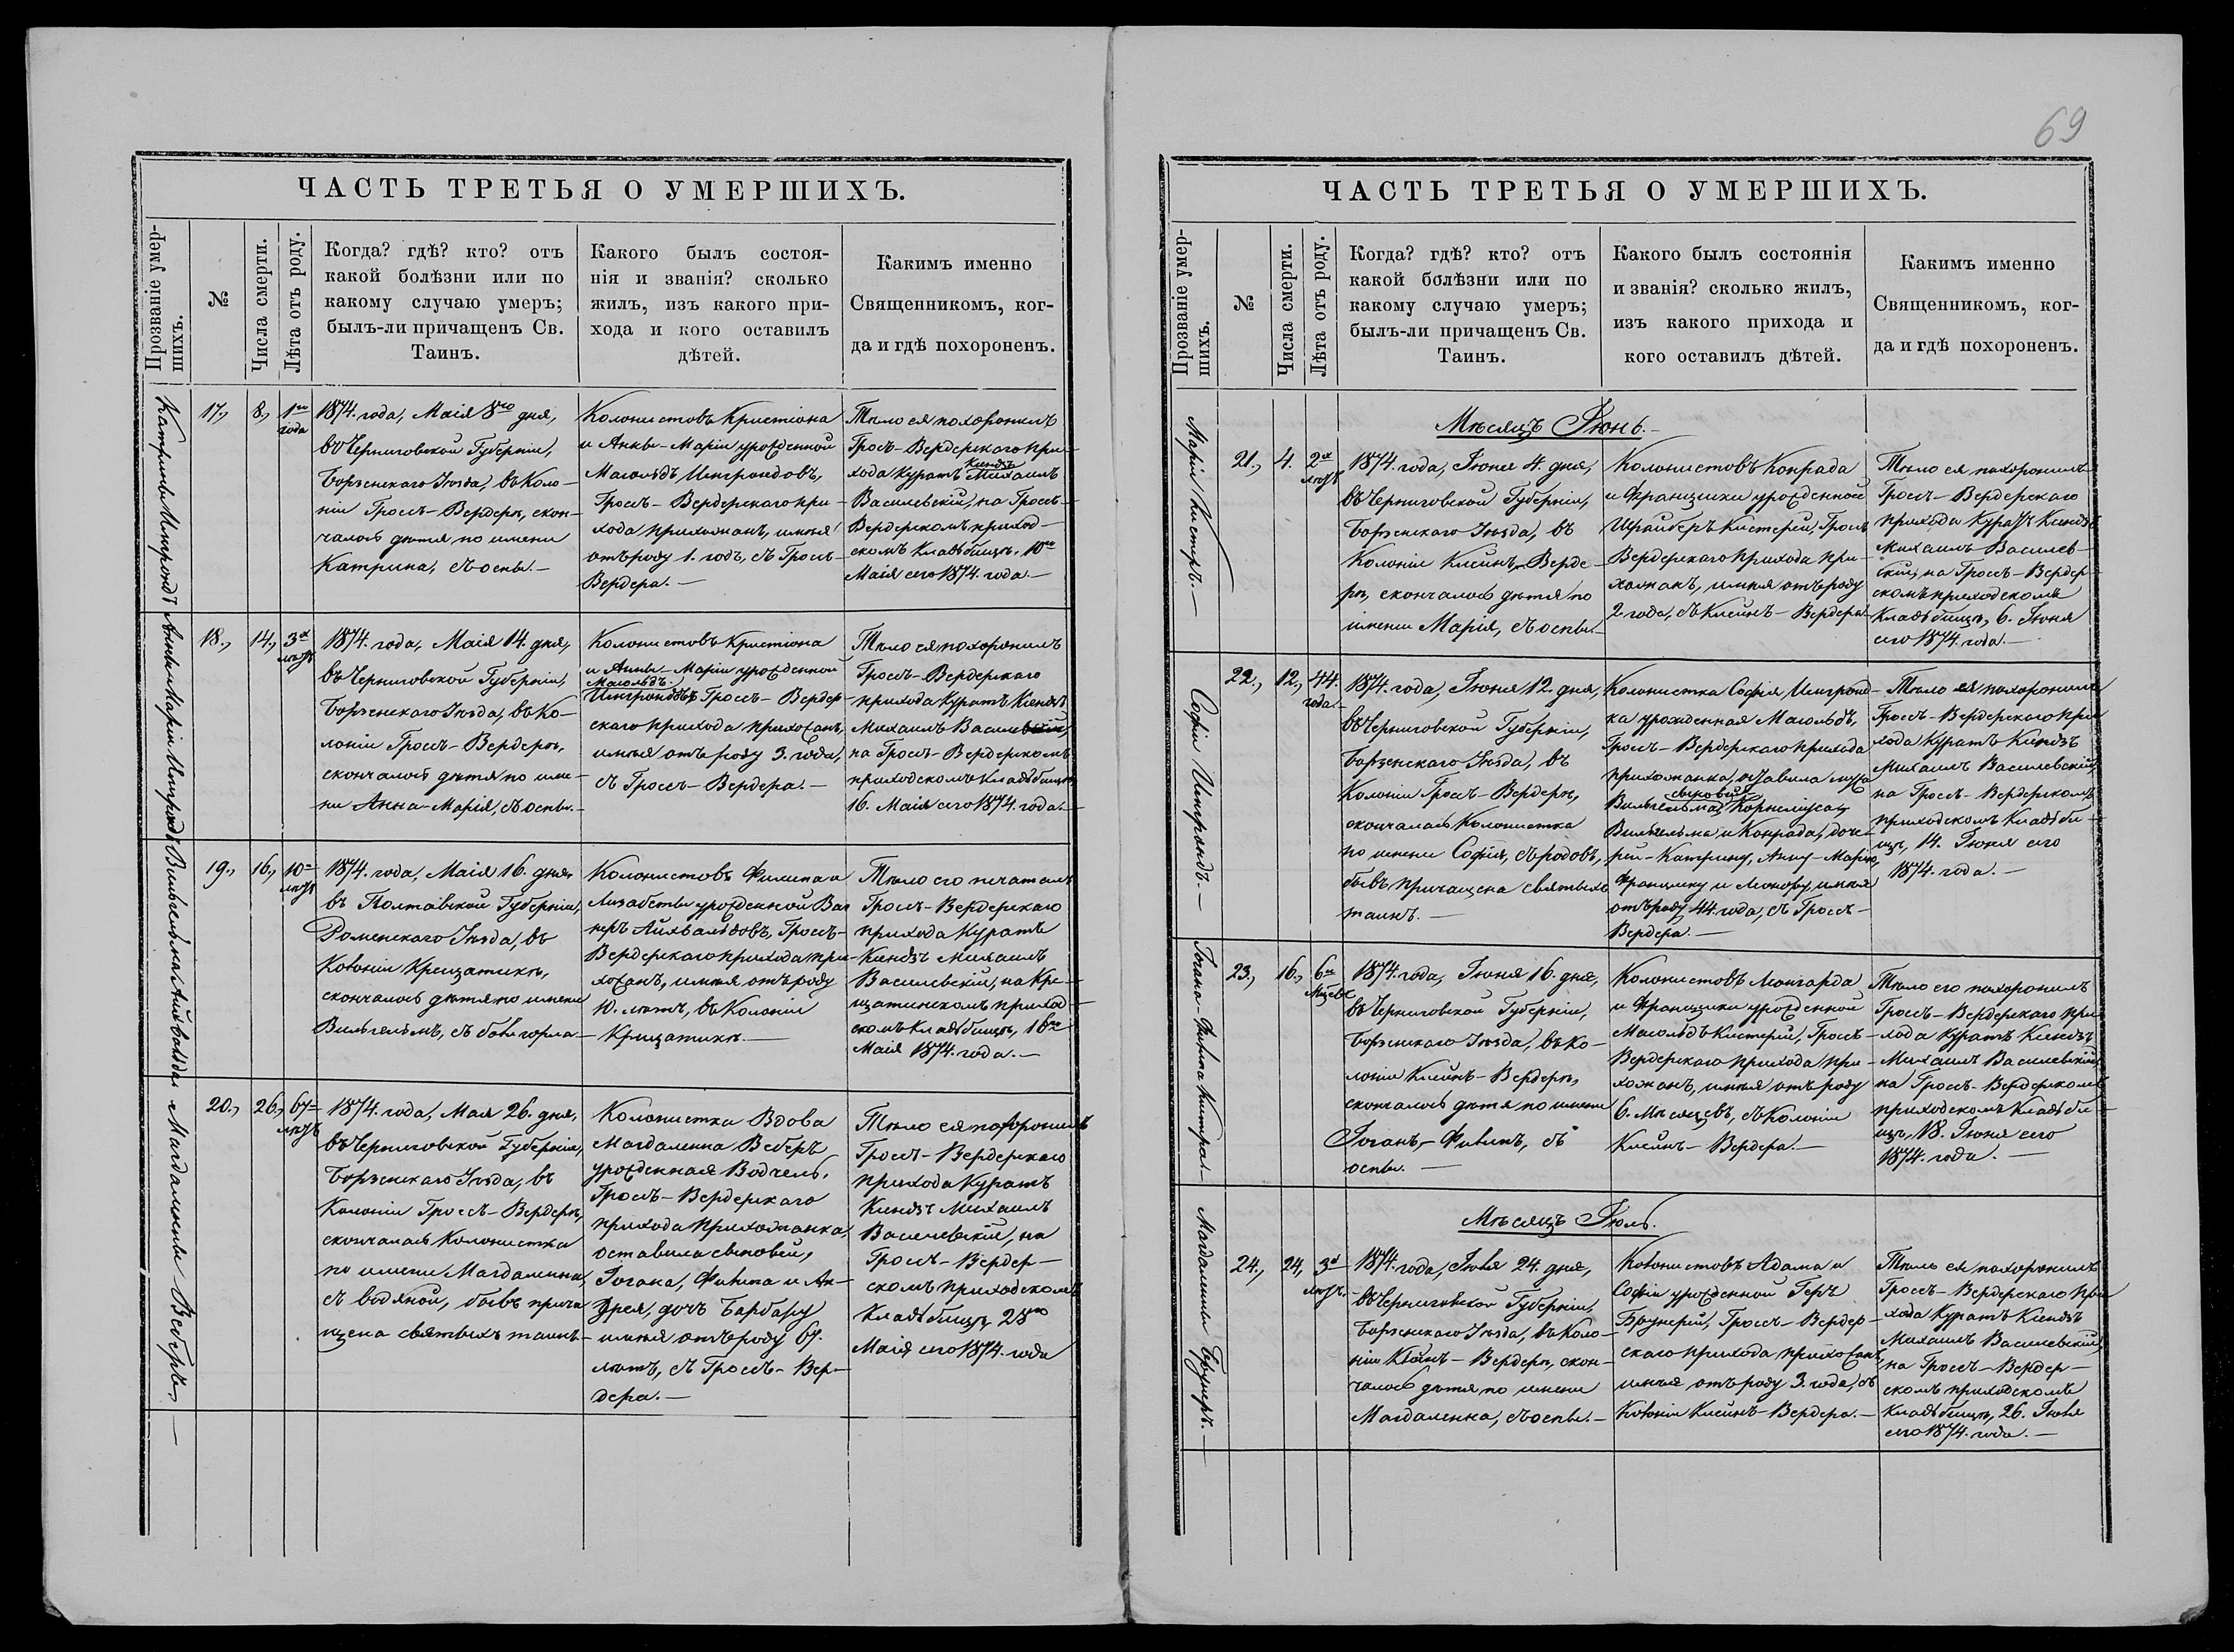 69
ЧАСТЬ ТРЕТЬЯ О УМЕРШИХЪ.
Прозваніе умер-
шихъ.
№
Числа смерти.
Лѣта отъ роду.
Когда? гдѣ? кто? отъ
какой болѣзни или по
какому случаю умеръ;
былъ-ли причащенъ Св.
Таинъ.
Какого былъ состоя-
нія и званія? сколько
жилъ, изъ какого при-
хода и кого оставилъ
дѣтей.
Какимъ именно
Священникомъ, ког-
да и гдѣ похороненъ.
Катрины Ингрондъ
17.,
8.,
1го
года
1874. года, Маія 8го дня,
въ Черниговской Губерніи,
Борзенскаго Уѣзда, въ Коло-
ніи Гросъ-Вердерѣ, скон-
чалось дѣтя по имени
Катрина, съ оспы.—
Колонистовъ Кристіона
и Анны-Маріи урожденной
Магольдъ Ингрондовъ,
Гросъ-Вердерскаго при-
хода прихожанъ, имѣя
отъ роду 1. годъ, съ Гросъ-
Вердера.—
Тѣло ея похоронилъ
Гросъ-Вердерскаго при-
хода Куратъ Ксендзъ Михаилъ
Василевскій, на Гросъ-
Вердерскомъ приход-
скомъ Кладбищѣ, 10го
Маія сего 1874. года.—
Анны Маріи Ингрондъ
18.,
14.,
3х
лѣтъ
1874. года, Маія 14. дня,
въ Черниговской Губерніи,
Борзенскаго Уѣзда, въ Ко-
лоніи Гросъ-Вердерѣ,
скончалось дѣтя по име-
ни Анна-Марія, съ оспы.—
Колонистовъ Кристіона
и Анны-Маріи урожденной
Магольдъ
Ингрондовъ, Гросъ-Вердер-
скаго прихода прихожанъ,
имѣя отъ роду 3. года,
съ Гросъ-Вердера.—
Тѣло ея похоронилъ
Гросъ-Вердерскаго
прихода Куратъ Ксендзъ
Михаилъ Василевскій,
на Гросъ-Вердерскомъ
приходскомъ Кладбищѣ,
16. Маія сего 1874. года.—
Вильгельма Айхвальда
19.,
16.,
10-
лѣтъ
1874. года, Маія 16. дня,
въ Полтавской Губерніи,
Роменскаго Уѣзда, въ
Колоніи Крещатикѣ,
скончалось дѣтя по имени
Вильгельмъ, съ боли горла—
Колонистовъ Филипа и
Лизабеты урожденной Ваг
неръ Айхвальдовъ, Гросъ-
Вердерскаго прихода при-
хожанъ, имѣя отъ роду
10. лѣтъ, въ Колоніи
Крищатикѣ.—
Гросъ-Вердерскаго
прихода Куратъ
Ксендзъ Михаилъ
Василевскій, на Кре-
щатинскомъ приход-
скомъ Кладбищѣ, 18го
Маія 1874. года.—
Магдаленны Веберъ.—
20.,
26.,
67-
лѣтъ
1874. года, Мая 26. дня,
въ Черниговской Губерніи,
Борзенскаго Уѣзда, въ
Колоніи Гроссъ-Вердерѣ,
скончалась Колонистка
по имени Магдаленна,
съ водяной, бывъ прича
щена святыхъ таинъ—
Колонистка Вдова
Магдаленна Веберъ
урожденная Водчель,
Гросъ-Вердерскаго
прихода прихожанка,
оставила сыновей,
Іогана, Филипа и Ан-
дрея, дочь Барбару
имѣя отъ роду 67.
лѣтъ, съ Гроссъ-Вер-
дера.—
Тѣло ея похоронилъ
Гроссъ-Вердерскаго
прихода Куратъ
Ксендзъ Михаилъ
Василевскій, на
Гроссъ-Вердер-
скомъ приходскомъ
Кладбищѣ, 28го
Маія сего 1874. года
ЧАСТЬ ТРЕТЬЯ О УМЕРШИХЪ.
Прозваніе умер-
шихъ.
№
Числа смерти.
Лѣта отъ роду.
Когда? гдѣ? кто? отъ
какой болѣзни или по
какому случаю умеръ;
былъ-ли причащенъ Св.
Таинъ.
Какого былъ состоянія
и званія? сколько жилъ,
изъ какого прихода и
кого оставилъ дѣтей.
Какимъ именно
Священникомъ, ког-
да и гдѣ похороненъ.
Мѣсяцъ Іюнь.—
Маріи Кистеръ.—
21.,
4.
2хъ
лѣтъ
1874. года, Іюня 4. дня,
въ Черниговской Губерніи,
Борзенскаго Уѣзда, въ
Колоніи Клейнъ-Верде-
рѣ, скончалось дѣтя по
имени Марія, съ оспы.—
Колонистовъ Конрада
и Францишки урожденной
Шрайберъ Кистерей, Гросъ
Вердерскаго прихода при-
хожанъ, имѣя отъ роду
2. года, съ Клейнъ-Вердера.
Тѣло ея похоронилъ
Гросъ-Вердерскаго
прихода Куратъ Ксендзъ
Михаилъ Василев-
скій, на Гросъ-Вердер-
скомъ приходскомъ
Кладбищѣ, 6. Іюня
сего 1874. года.—
Софіи Ингрондъ.—
22.,
12.,
44.
года.
1874. года, Іюня 12. дня,
въ Черниговской Губерніи,
Борзенскаго Уѣзда, въ
Колоніи Гросъ-Вердерѣ,
скончалась Колонистка
по имени Софія, съ родовъ,
бывъ причащена святыхъ
таинъ.—
Колонистка Софія Ингронд-
ка урожденная Магольдъ,
Гросъ-Вердерскаго прихода
прихожанка, оставила мужа
сыновей
Вильгельма, Корнелиуса,
Вильгельма и Конрада, доче-
рей-Катрину, Анну-Марію,
Францишку и Леонору, имѣя
отъ роду 44. года, съ Гроссъ-
Вердера.—
Тѣло ея похоронилъ
Гроссъ-Вердерскаго при
хода Куратъ Ксендзъ
Михаилъ Василевскій,
на Гросъ-Вердерскомъ
приходскомъ Кладби-
щѣ, 14. Іюня сего
1874. года.—
Іогана-Филипа Кистера.—
23.,
16.,
6ти
Мѣсяц
1874. года, Іюня 16. дня,
въ Черниговской Губерніи,
Борзенскаго Уѣзда, въ Ко-
лоніи Клейнъ-Вердерѣ,
скончалось дѣтя по имени
Іоганъ-Филипъ, съ
оспы.—
Колонистовъ Леонгарда
и Францишки урожденной
Магольдъ Кистерей, Гросъ-
Вердерскаго прихода при-
хожанъ, имѣя отъ роду
6. Мѣсяцевъ, съ Колоніи
Клейнъ-Вердера.—
Тѣло его похоронилъ
Гросъ-Вердерскаго при-
хода Куратъ Ксендзъ
Михаилъ Василевскій,
на Гросъ-Вердерскомъ
приходскомъ Кладби-
щѣ, 18. Іюня сего
1874. года.—
Мѣсяцъ Іюль.
Магдаленны Брунеръ.—
24.,
24,
3х
лѣтъ.
1874. года, Іюля 24. дня,
въ Черниговской Губерніи,
Борзенскаго Уѣзда, въ Коло-
ніи Клейнъ-Вердерѣ, скон-
чалось дѣтя по имени
Магдаленна, съ оспы.—
Колонистовъ Адама и
Софіи урожденной Герц
Брунерей, Гроссъ-Вердер-
скаго прихода прихожанъ,
имѣя отъ роду 3. года, съ
Колоніи Клейнъ-Вердера.—
Тѣло ея похоронилъ
Гроссъ-Вердерскаго при
хода Куратъ Ксендзъ
Михаилъ Василевскій,
на Гроссъ-Вердер-
скомъ приходскомъ
Кладбищѣ, 26. Іюля
сего 1874. года.—